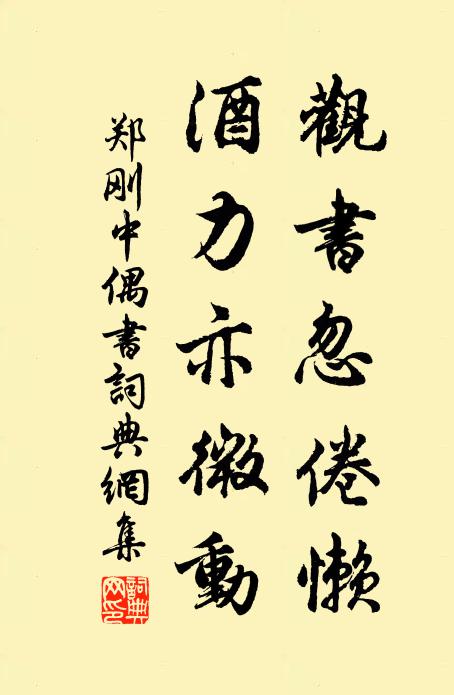 觀書忽倦懶
酒力亦微動
郑刚中偶書詞典網集